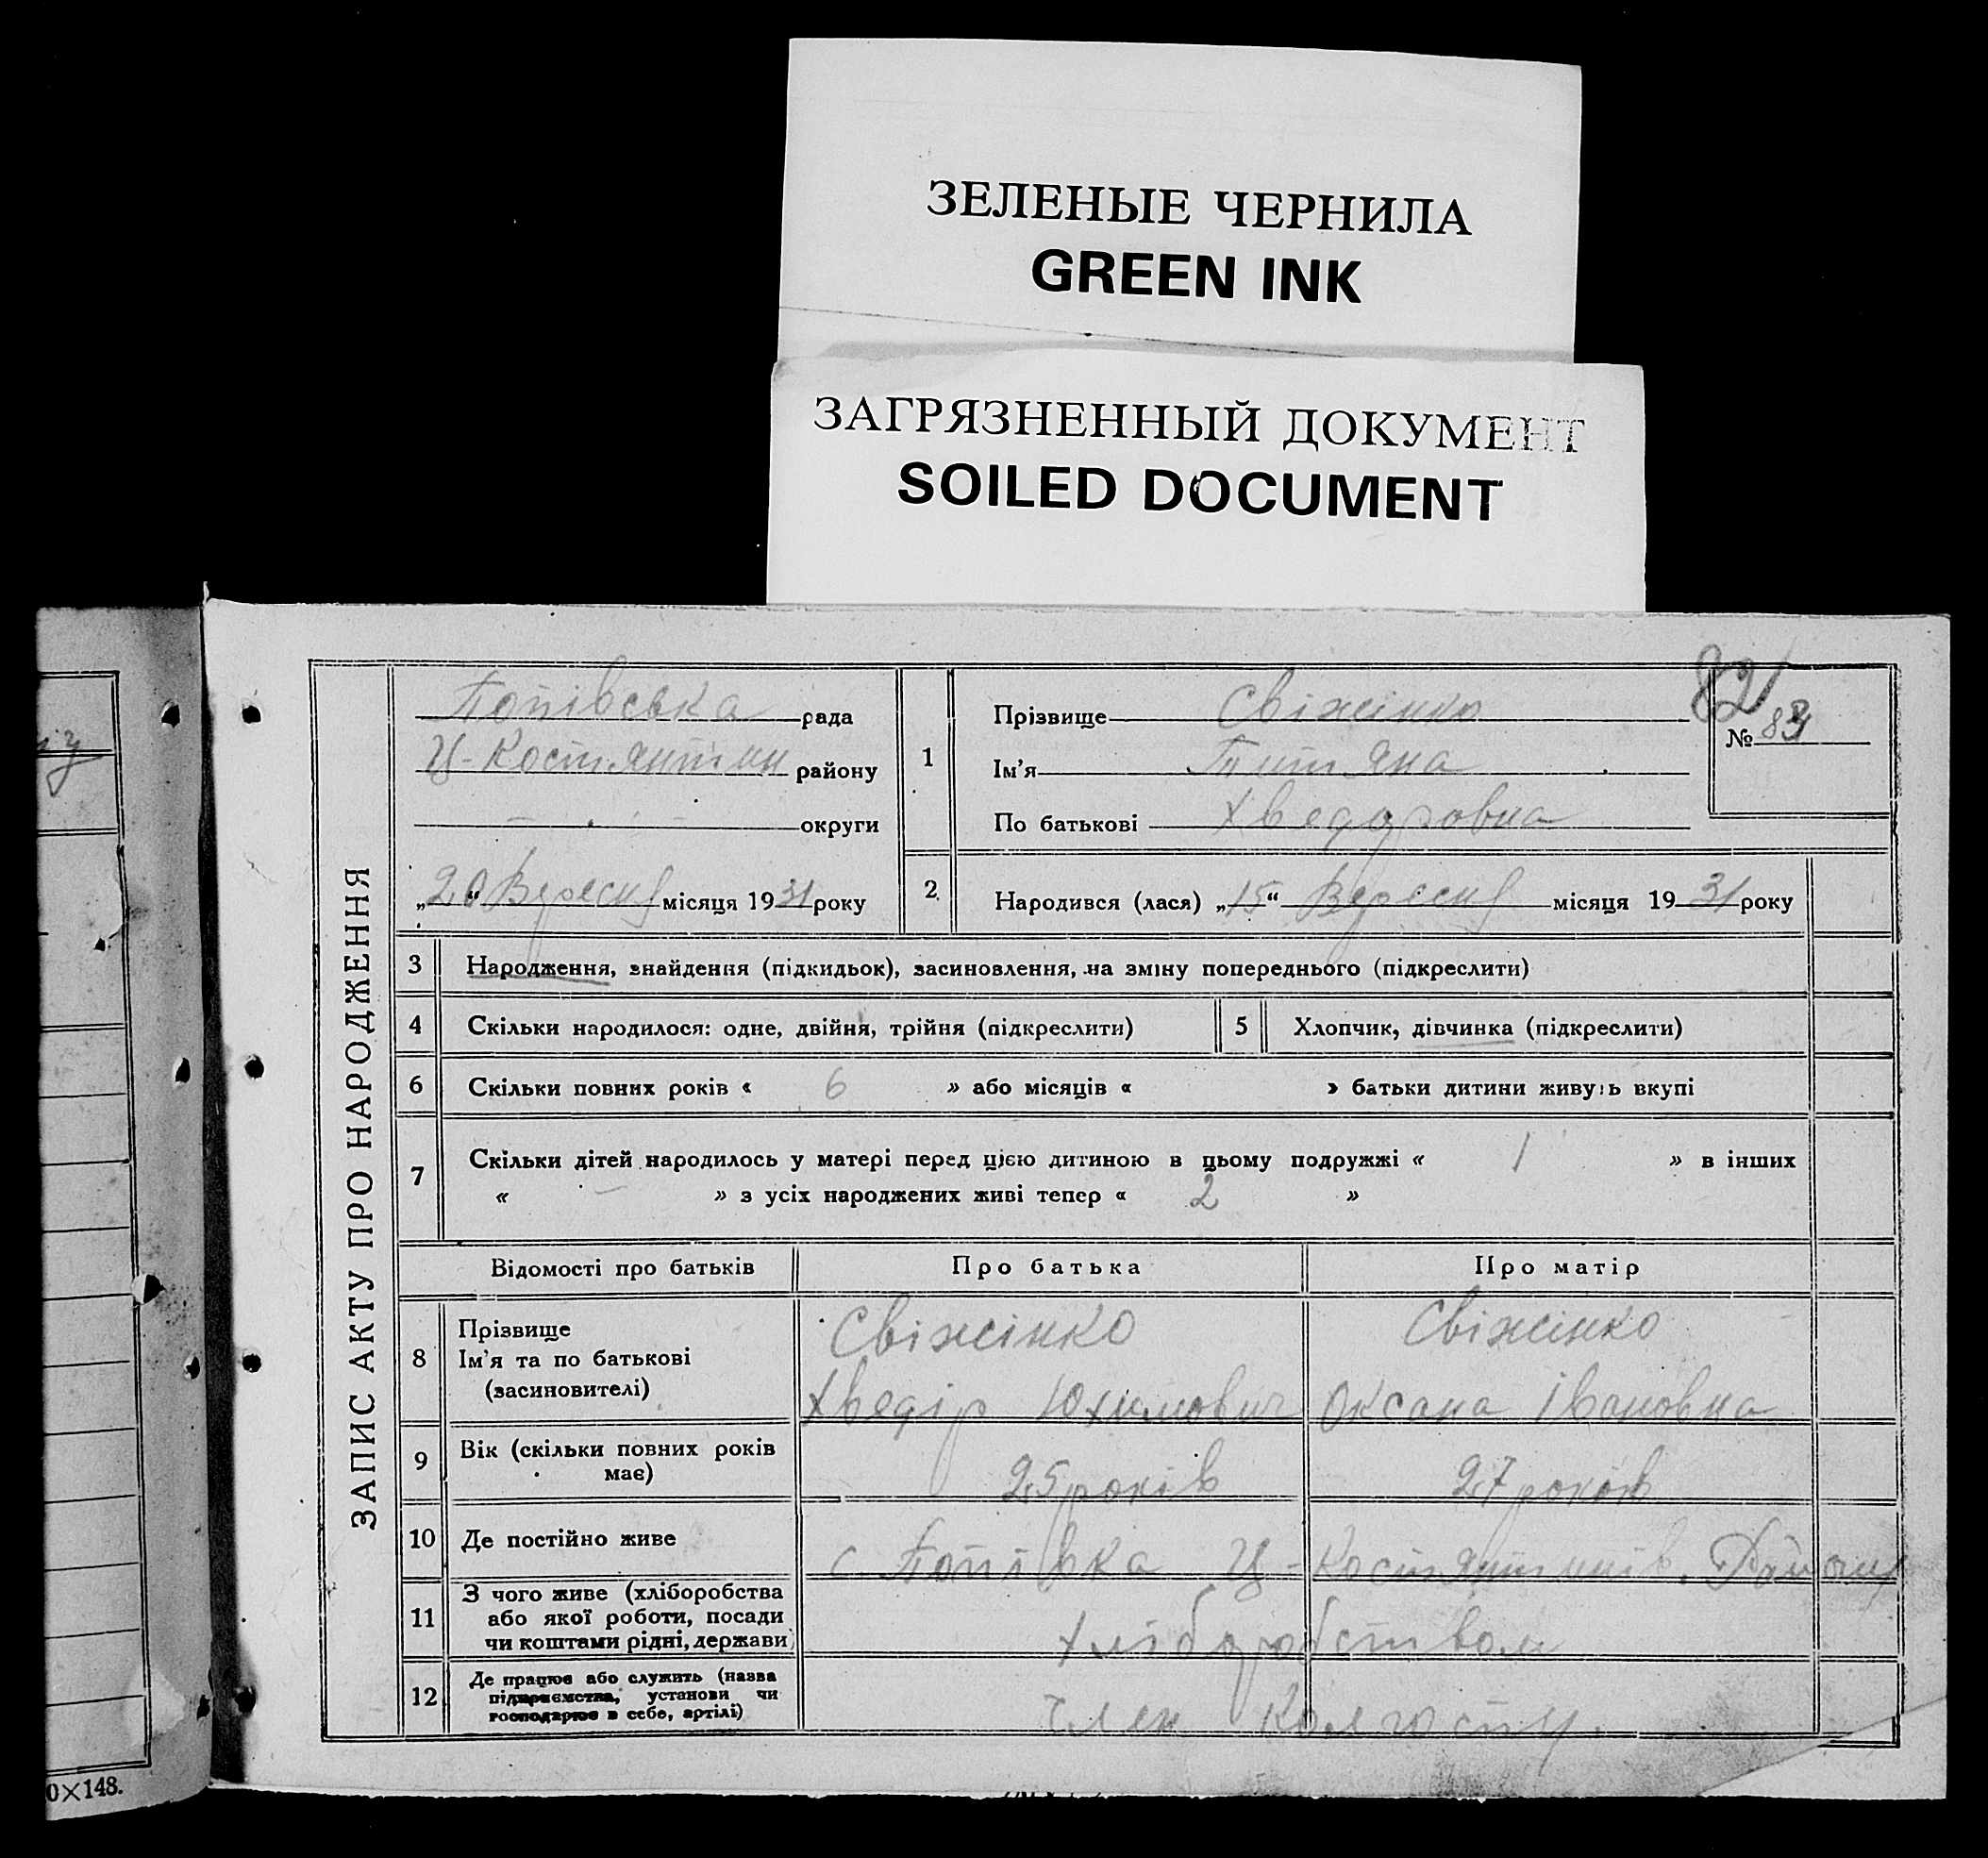 ЗЕЛЕНЫЕ ЧЕРНИЛА
GREEN INK
ЗАГРЯЗНЕННЫЙ ДОКУМЕНТ
SOILED DOCUMENT
82
№ 83
ЗАПИС АКТУ ПРО НАРОДЖЕННЯ
Попівська рада
Ц-Костянтин району
— округи
„20“ Вересня місяця 1931 року
1
Прізвище Свіжінко
Ім'я Титяна
По батькові Хведоровна
2 Народився (лася) „15“ Вересня місяця 1931 року
3 Народження, знайдення (підкидьок), засиновлення, на зміну попереднього (підкреслити)
4 Скільки народилося: одне, двійня, трійня (підкреслити) 5 Хлопчик, дівчинка (підкреслити)
6 Скільки повних років « 6 » або місяців « » батьки дитини живуть вкупі
7 Скільки дітей народилось у матері перед цією дитиною в цьому подружжі « 1 » в інших
« — » з усіх народжених живі тепер « 2 »
Відомості про батьків Про батька Про матір
8 Прізвище Свіжінко Свіжінко
Ім'я та по батькові Хведір Юхимович Оксана Івановна
(засиновителі)
9 Вік (скільки повних років 25 років 27 років
має)
10 Де постійно живе с. Попівка Ц-Костянтинів. Району
11 З чого живе (хліборобства
або якої роботи, посади
чи коштами рідні, держави) хліборобством
12 Де працює або служить (назва
підприємства, установи чи
господарює в себе, артілі) Член Колгоспу.
0×148.